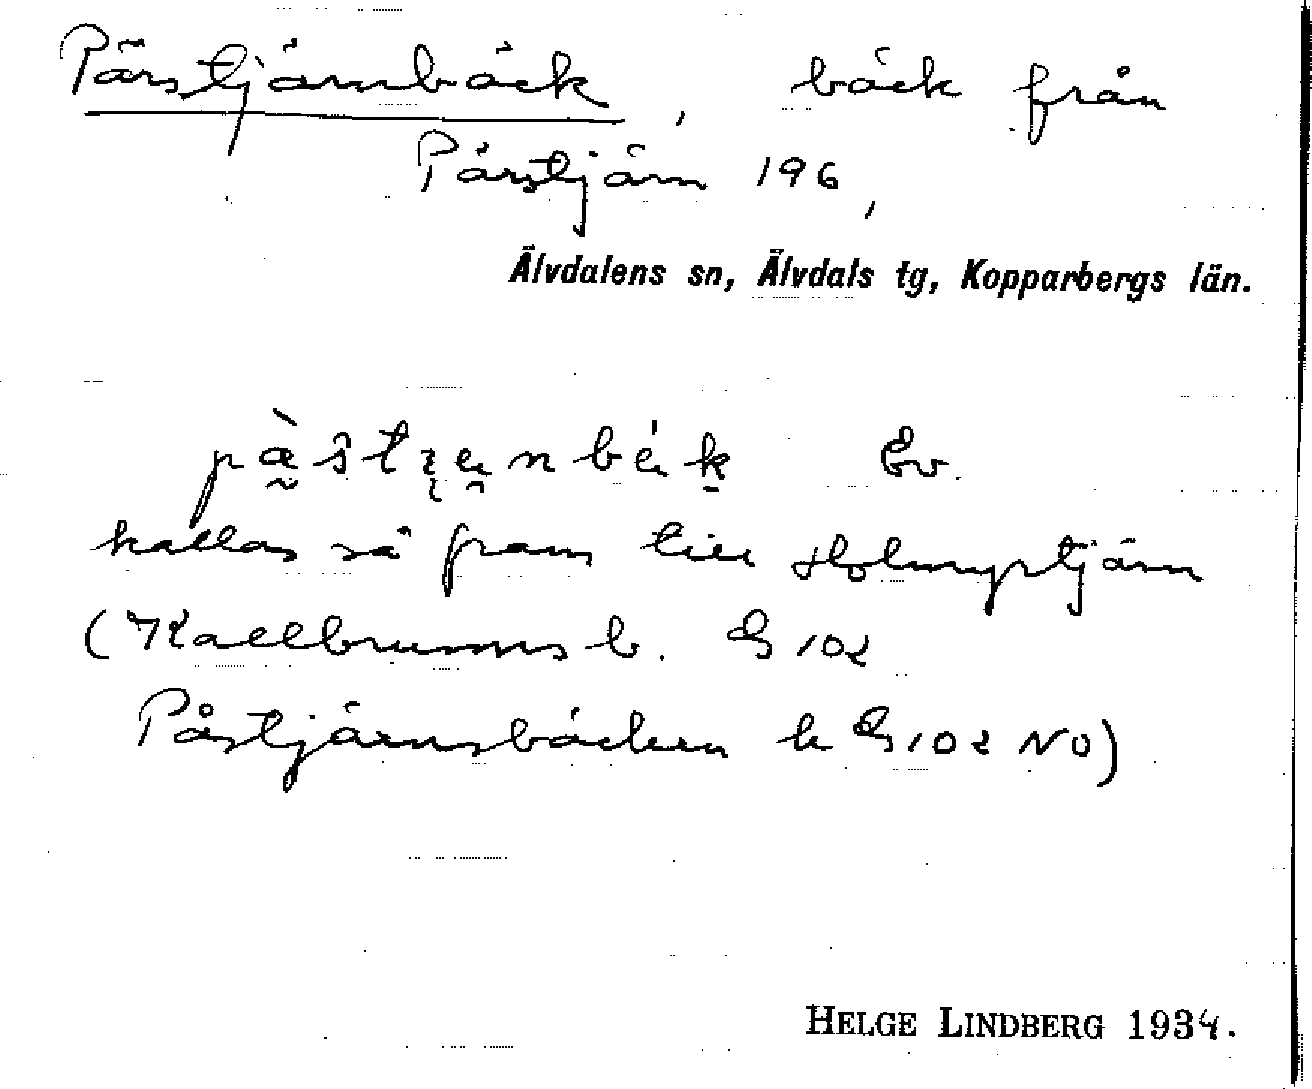 Pärstjärnbäck, bäck från
Pärstjärn 196,
Älvdalens sn, Älvdals tg, Kopparbergs län.
Ev.
kallas så fram till Holmyrtjärn
(Kallbrunnsb. G 102
Påstjärnsbäcken k G 102 NO)
HELGE LINDBERG 1934.